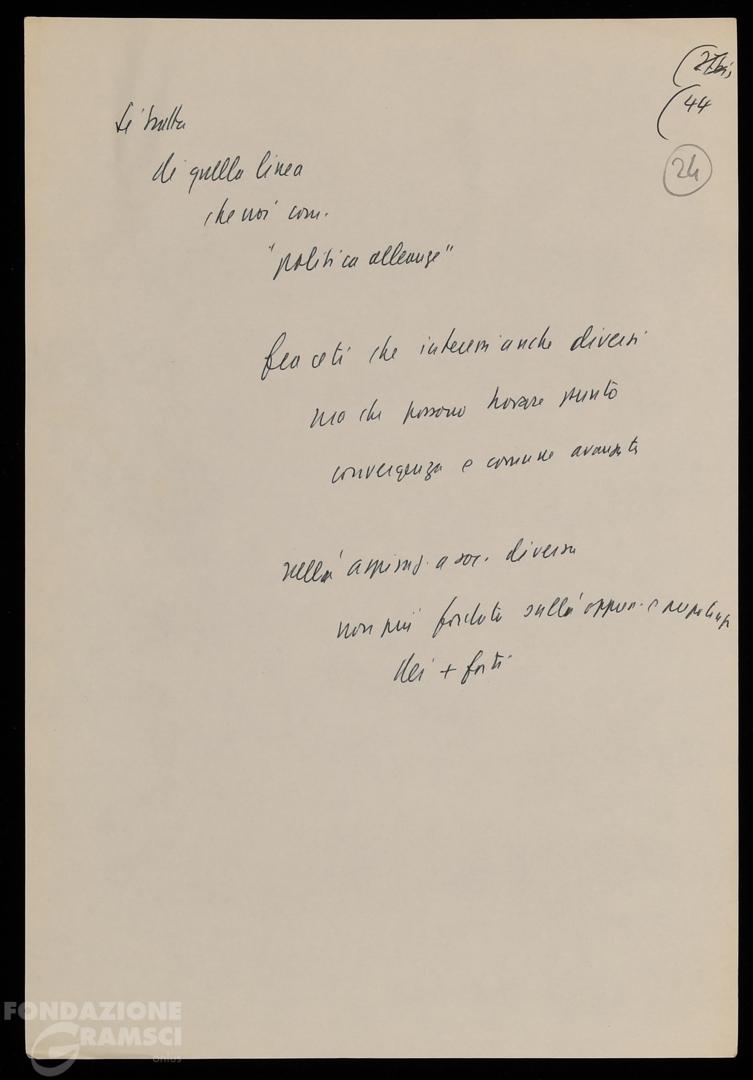 (27bis
(44
24
Si tratta
di quella linea
che noi com.
"politica alleanze"
fra ceti che interessi anche diversi
ma che possono trovare punto
convergenza e comune avanzata
nella aspiraz. a soc. diversa
non più fondata sulla oppress. e
dei + forti
FONDAZIONE
GRAMSCI
onlus